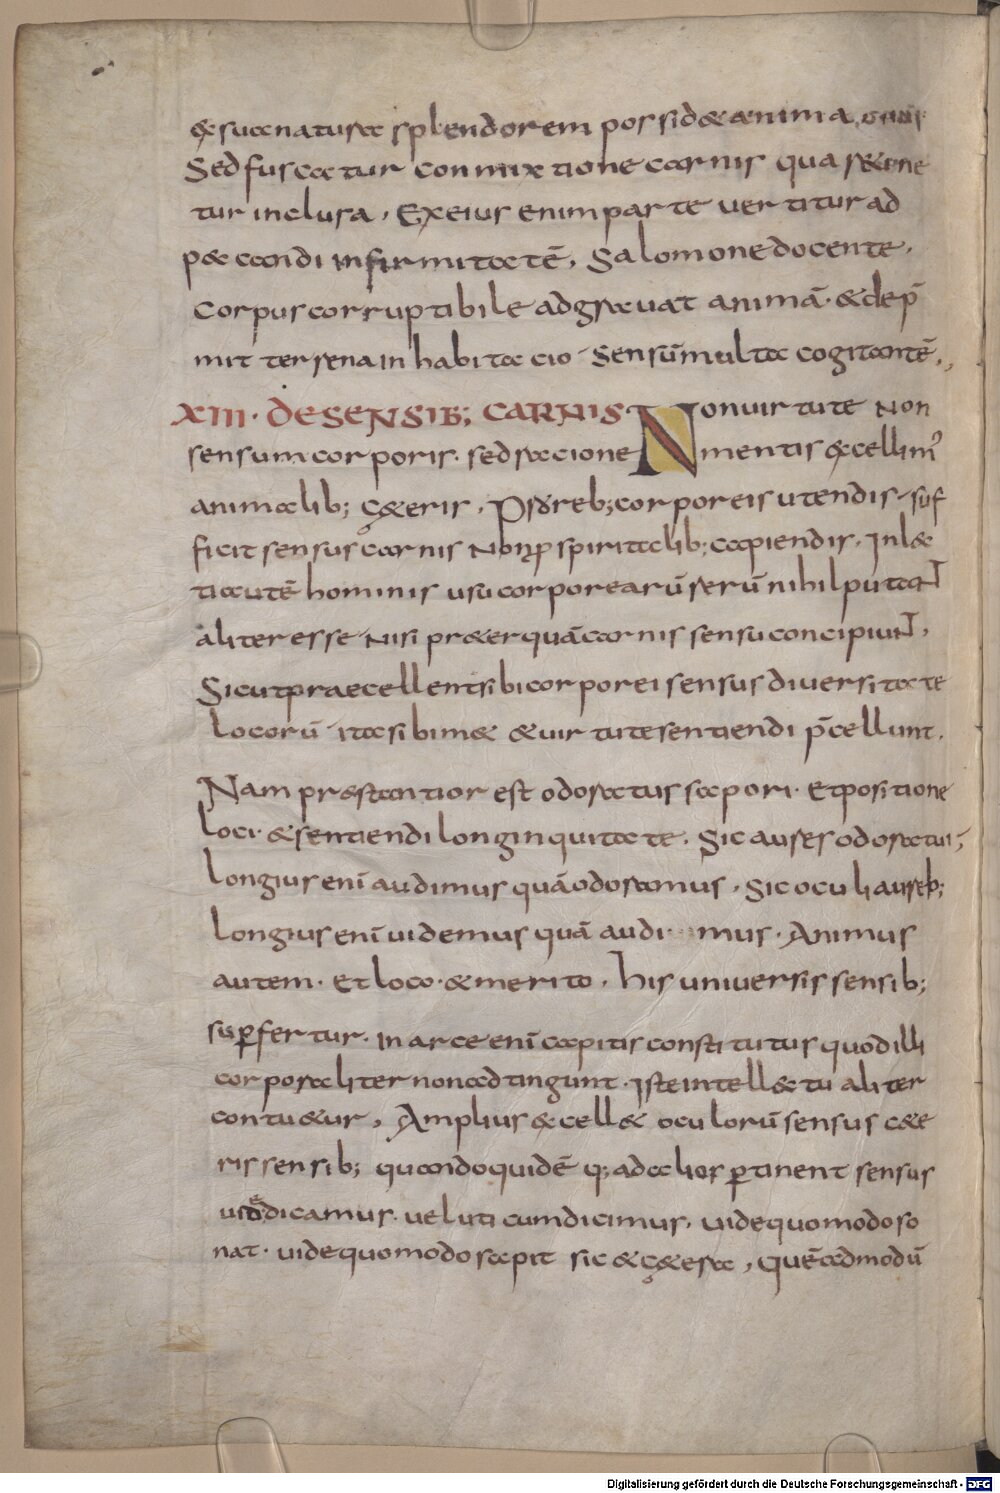 & suae naturae splendorem possid& anima,
Sed fuscatur conmixtione carnis qua r&ine
tur inclusa, Ex eius enim parte uertitur ad
peccandi infirmitatē, Salomone docente,
Corpus corruptibile adgrauat animā· & dep̄
mit terrena inhabitacio sensū multa cogitantē,
XIII· DE SENSIB; CARNIS Non uirtute non
sensum corporis· sed racione mentis excellim'
animalib; c&eris, Pro reb; corporeis utendis suf
ficit sensus carnis non ꝓ spiritalib; capiendis, In lae
tiautē hominis usu corporearū rerū nihil putant
aliter esse nisi pr&er quā carnis sensu concipiunt,
Sicut praecellent sibi corporei sensus diuersitate
locorū ita sibim& & uirtute sentiendi p̄cellunt.
Nam praestantior est odoratus sapori· Et positione
loci· & sentiendi longinquitate, Sic aures odoratui;
longius enī audimus quā odoramus, Sic oculi aureb;
longius enī uidemus quā audimus· Animus
autem· Et loco· & merito, his uniuersis sensib;
suꝑfertur· in arce enī capitis constitutus quod illi
corporaliter non adtingunt· Iste intell&tu aliter
contu&ur, Amplius &cell& oculorū sensus c&e
ris sensib; quandoquidē q; ad alios ꝑtinent sensus
uidē dicamus· ueluti cum dicimus, uide quomodo so
nat· uide quomodo sapit sic & c&era, Quēadmodū
Digitalisierung gefördert durch die Deutsche Forschungsgemeinschaft - DFG